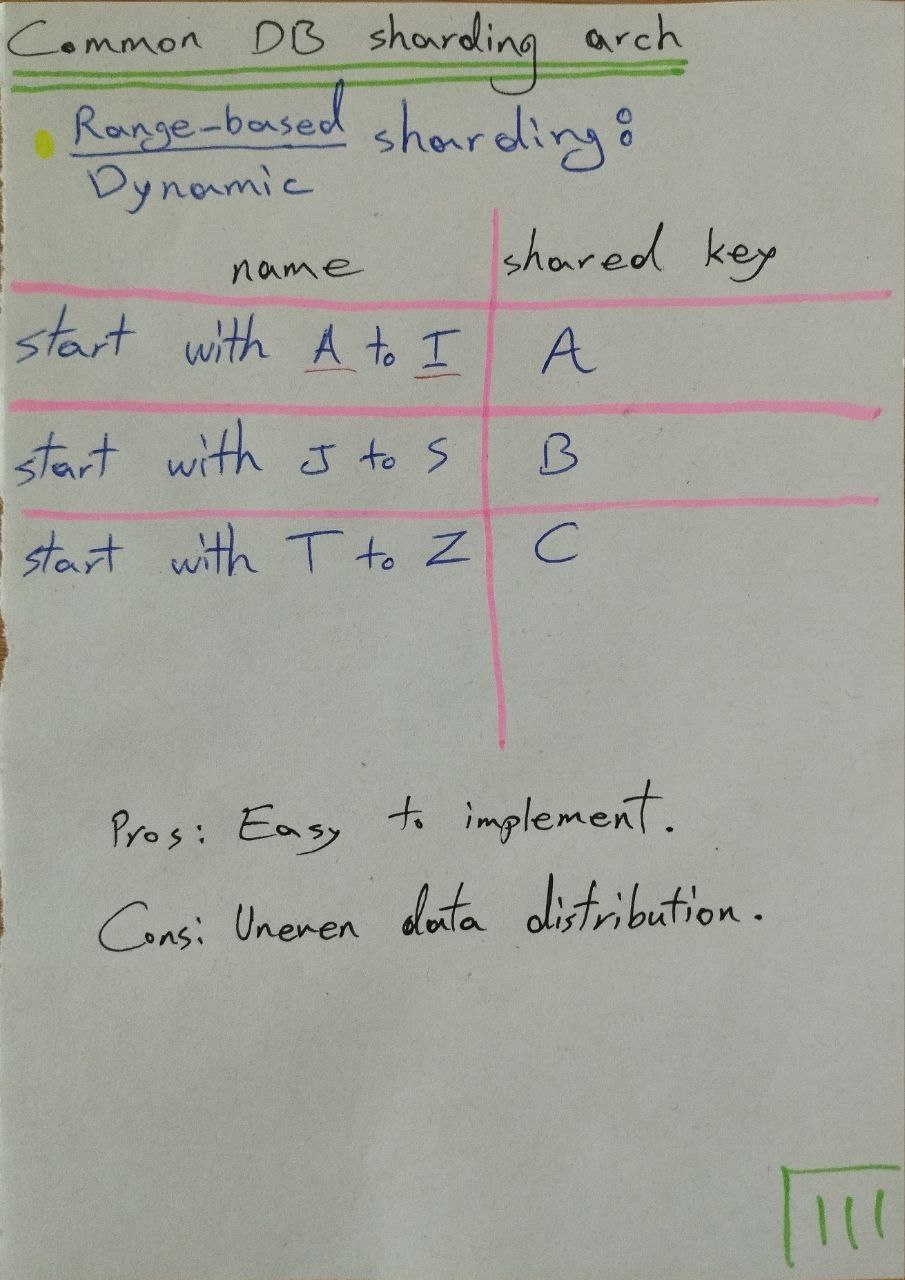 Common DB sharding arch
Range-based sharding:
Dynamic
name shared key
start with A to I A
start with J to S B
start with T to Z C
Pros: Easy to implement.
Cons: Uneven data distribution.
111